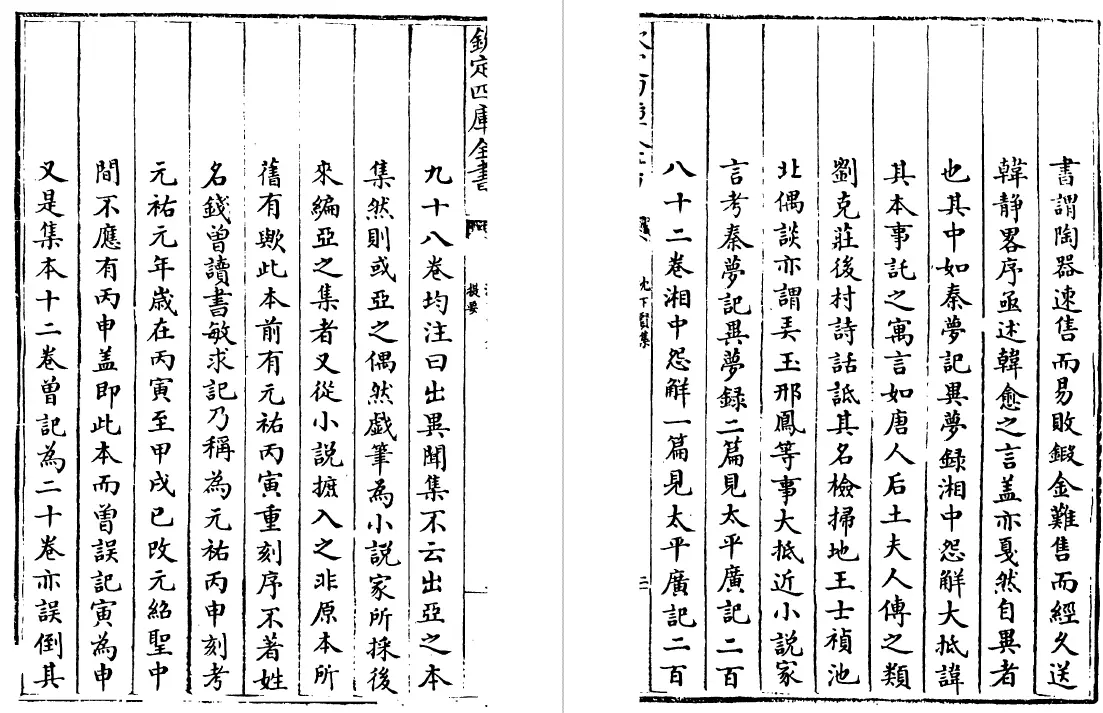 書謂陶器速售而易敗鍜金難售而經久送
韓静畧序亟述韓愈之言盖亦戛然自異者
也其中如秦夢記異夢録湘中怨解大抵諱
其本事託之寓言如唐人后土夫人傳之類
劉克莊後村詩話詆其名檢掃地王士禎池
北偶談亦謂弄玉邢鳳等事大抵近小説家
言考秦夢記異夢録二篇見太平廣記二百
八十二卷湘中怨解一篇見太平廣記二百
沈下賢集
二
欽定四庫全書
提要
九十八卷均注曰出異聞集不云出亞之本
集然則或亞之偶然戯筆為小説家所採後
來編亞之集者又從小説摭入之非原本所
舊有歟此本前有元祐丙寅重刻序不著姓
名錢曾讀書敏求記乃稱為元祐丙申刻考
元祐元年歳在丙寅至甲戌已改元紹聖中
間不應有丙申盖即此本而曾誤記寅為申
又是集本十二卷曾記為二十卷亦誤倒其